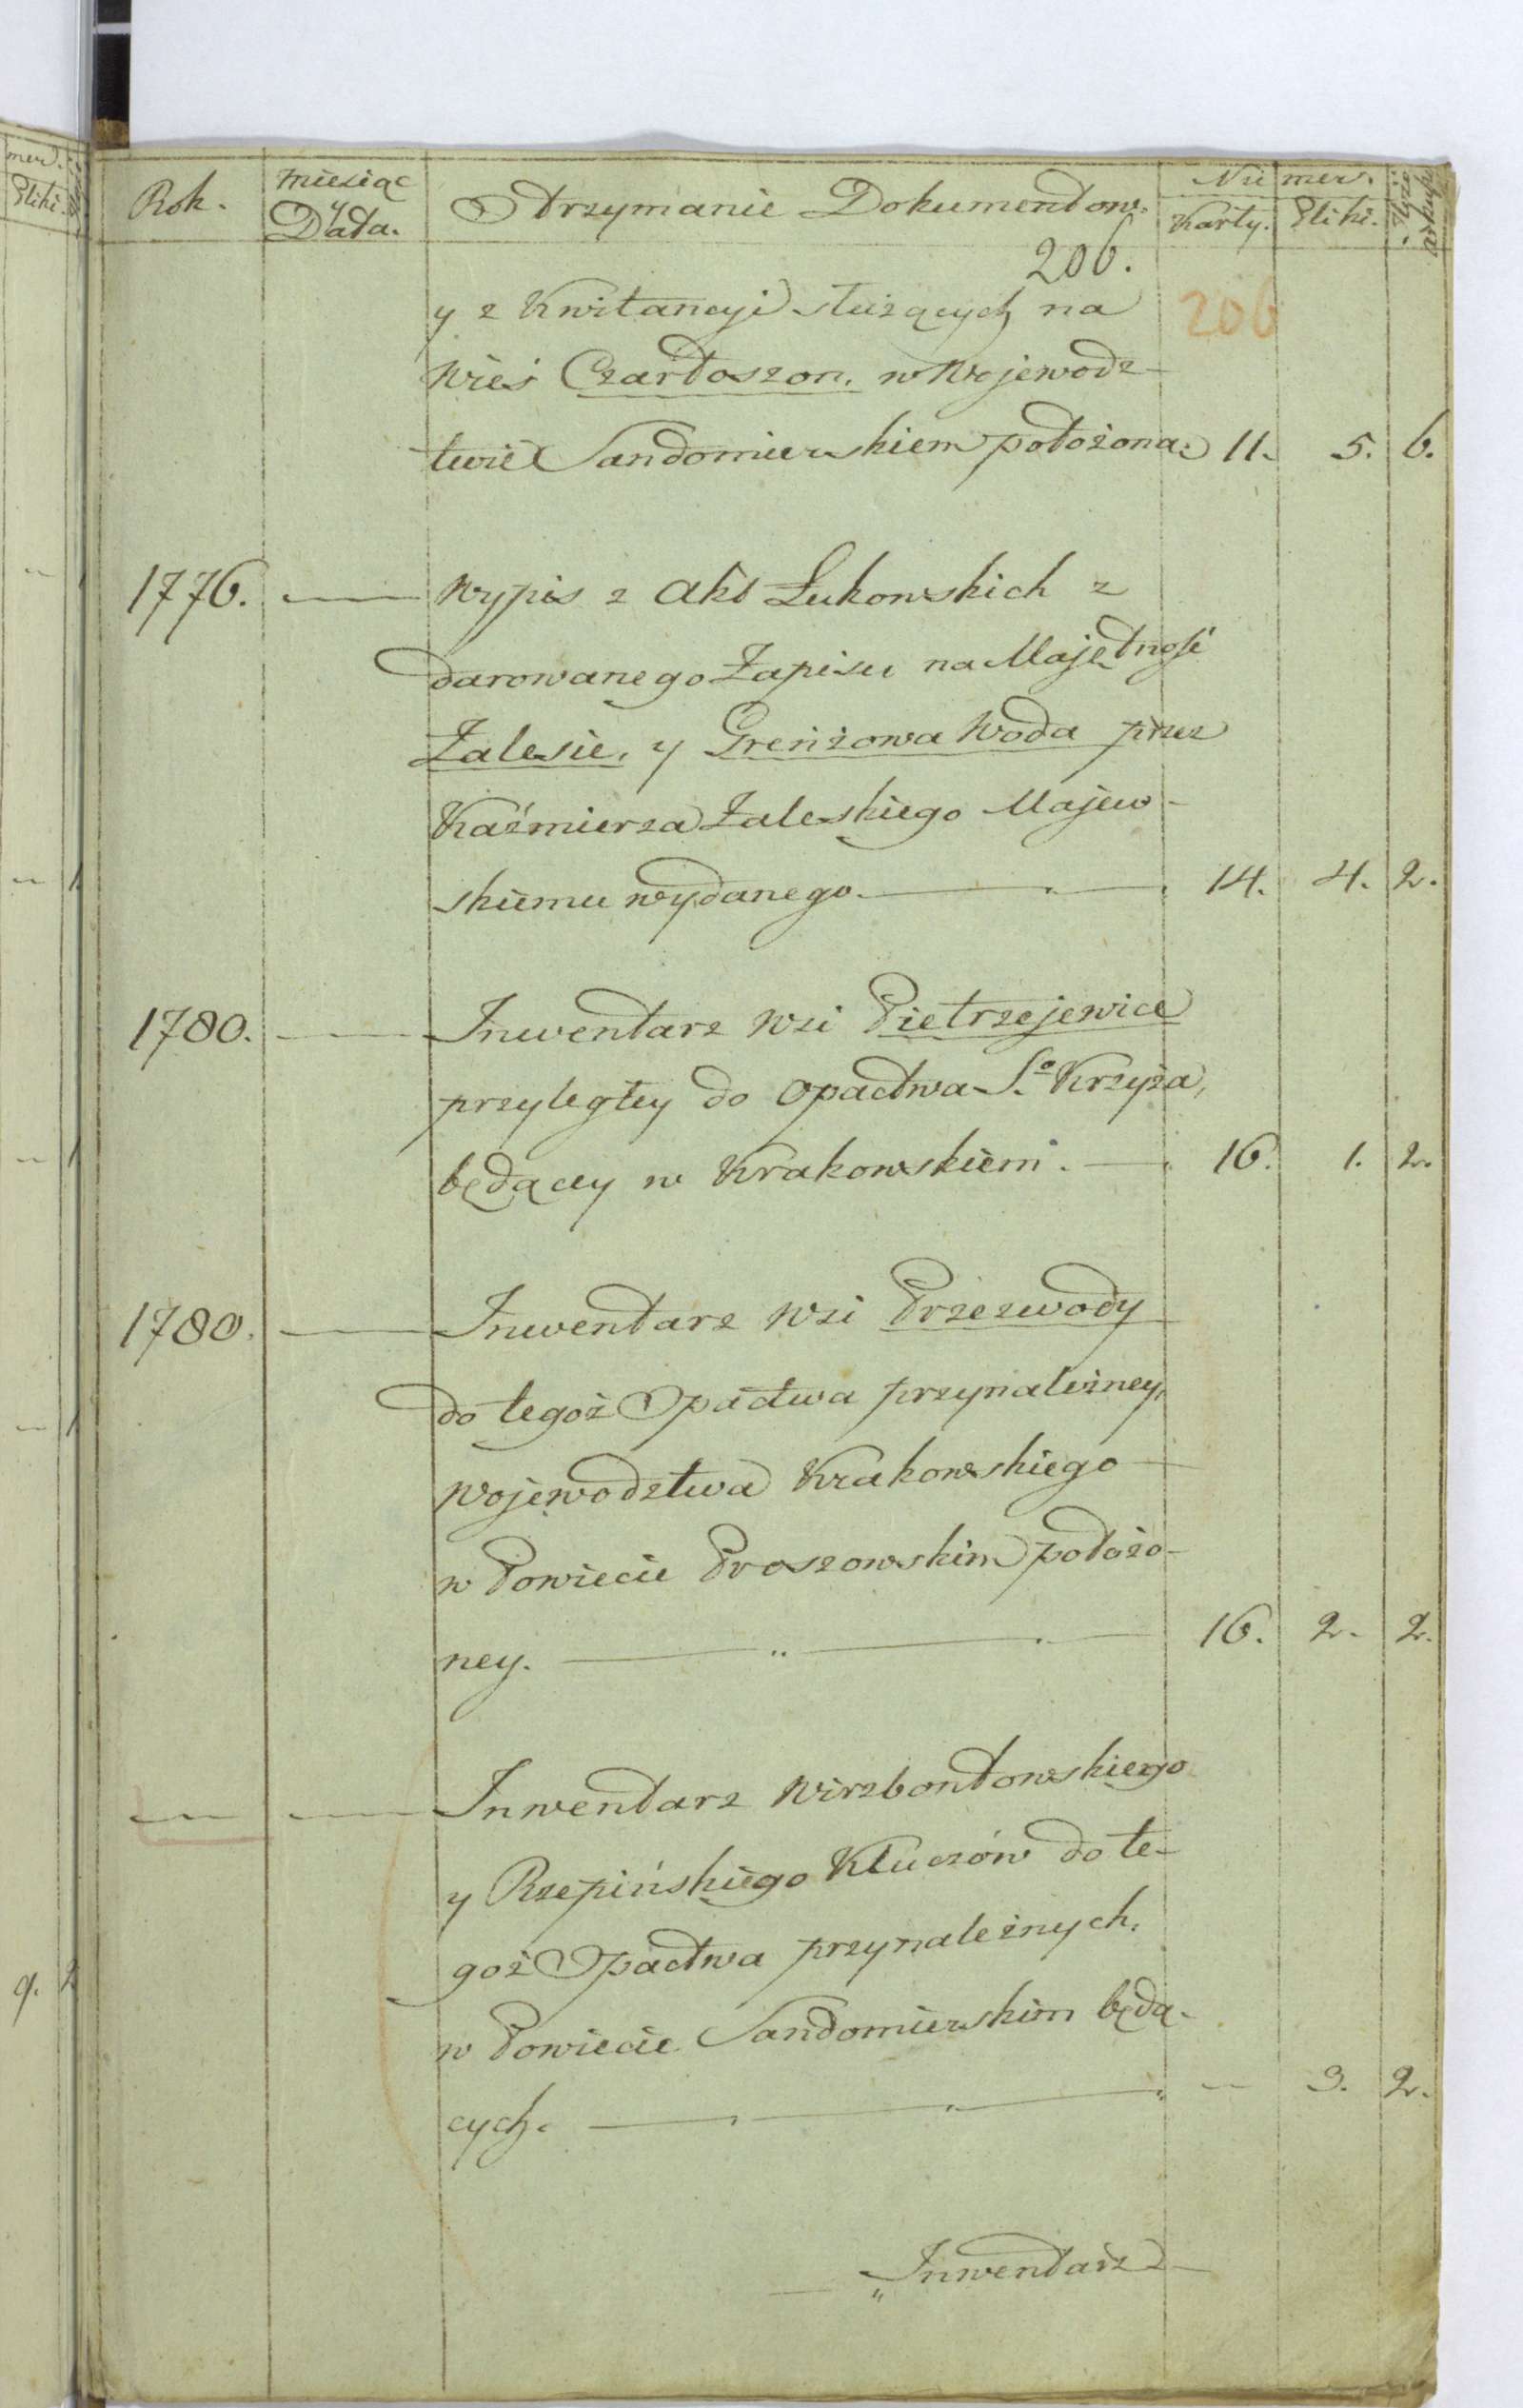 Rok.
Miesiąc
y
Data.
Otrzymanie Dokumentow.
Numer.
Karty. Pliki.
arkuszy
206.
206
y z Kwitancyi służących na
Wieś Czartoszon. w Wojewodz-
twie Sandomierskiem położona. 11. 5. 6.
1776. — Wypis z Akt Łukowskich z
darowanego Zapisu na Majętność
Zalesie, y Greniżowa Woda przez
Kaźmierza Zaleskiego Majew-
skiemu wydanego. — 14. 4. 2.
1780. — Inwentarz Wsi Pietrzejewice
przyległey do Opactwa S.o Krzyża,
będącey w Krakowskiem. — 16. 1. 2.
1780. — Inwentarz Wsi Przezwody
do tegoż Opactwa przynależney,
Wojewodztwa Krakowskiego
w Powiecie Proszowskim położo-
ney. — 16. 2. 2.
— — Inwentarz Wirzbontowskiego
y Rzepińskiego Kluczów do te-
goż Opactwa przynależnych,
w Powiecie Sandomierskim będą-
cych. — 3. 2.
Inwentarz
mer.
Pliki.
1
1
1
9. 2